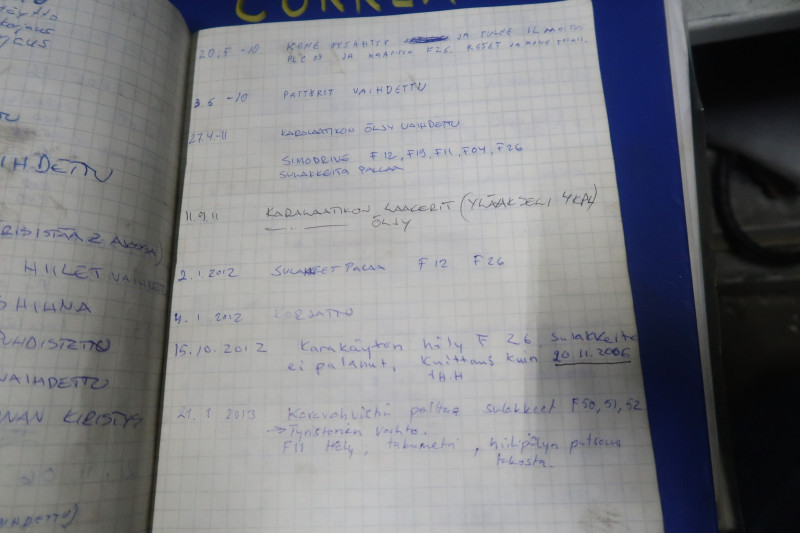 CORREA
20.5 -10 KONE PYSÄHTYY JA TULEE ILMOITUS
PLC JA NÄYTTÖÖN F26. RESET JA KONE TOIMII.
3.6 -10 PATTERIT VAIHDETTU
27.4-11 KARALAATIKON ÖLJY VAIHDETTU
SIMODRIVE F12, F19, F11, F04, F26
SULAKKEITA PALAA
11.9.11 KARALAATIKON LAAKERIT (YLÄAKSELI 4KPL)
ÖLJY
2.1.2012 SULAKKEET PALAA F12 F26
4.1.2012 KORJATTU
15.10.2012 Karakäytön häly F 26 sulakkeita
ei palanut, Kuittaus kuin 20.11.2006
tH.H
21.1 2013 Karavahvistin polttaa sulakkeet F50, 51, 52
→ Tyristorien vaihto.
F11 Häly, takometri, hiilipölyn putsaus
takosta.
VAIHDETTU
HIILET VAIHDETTU
HIHNA
PUHDISTETTU
VAIHDETTU
KIRISTYS